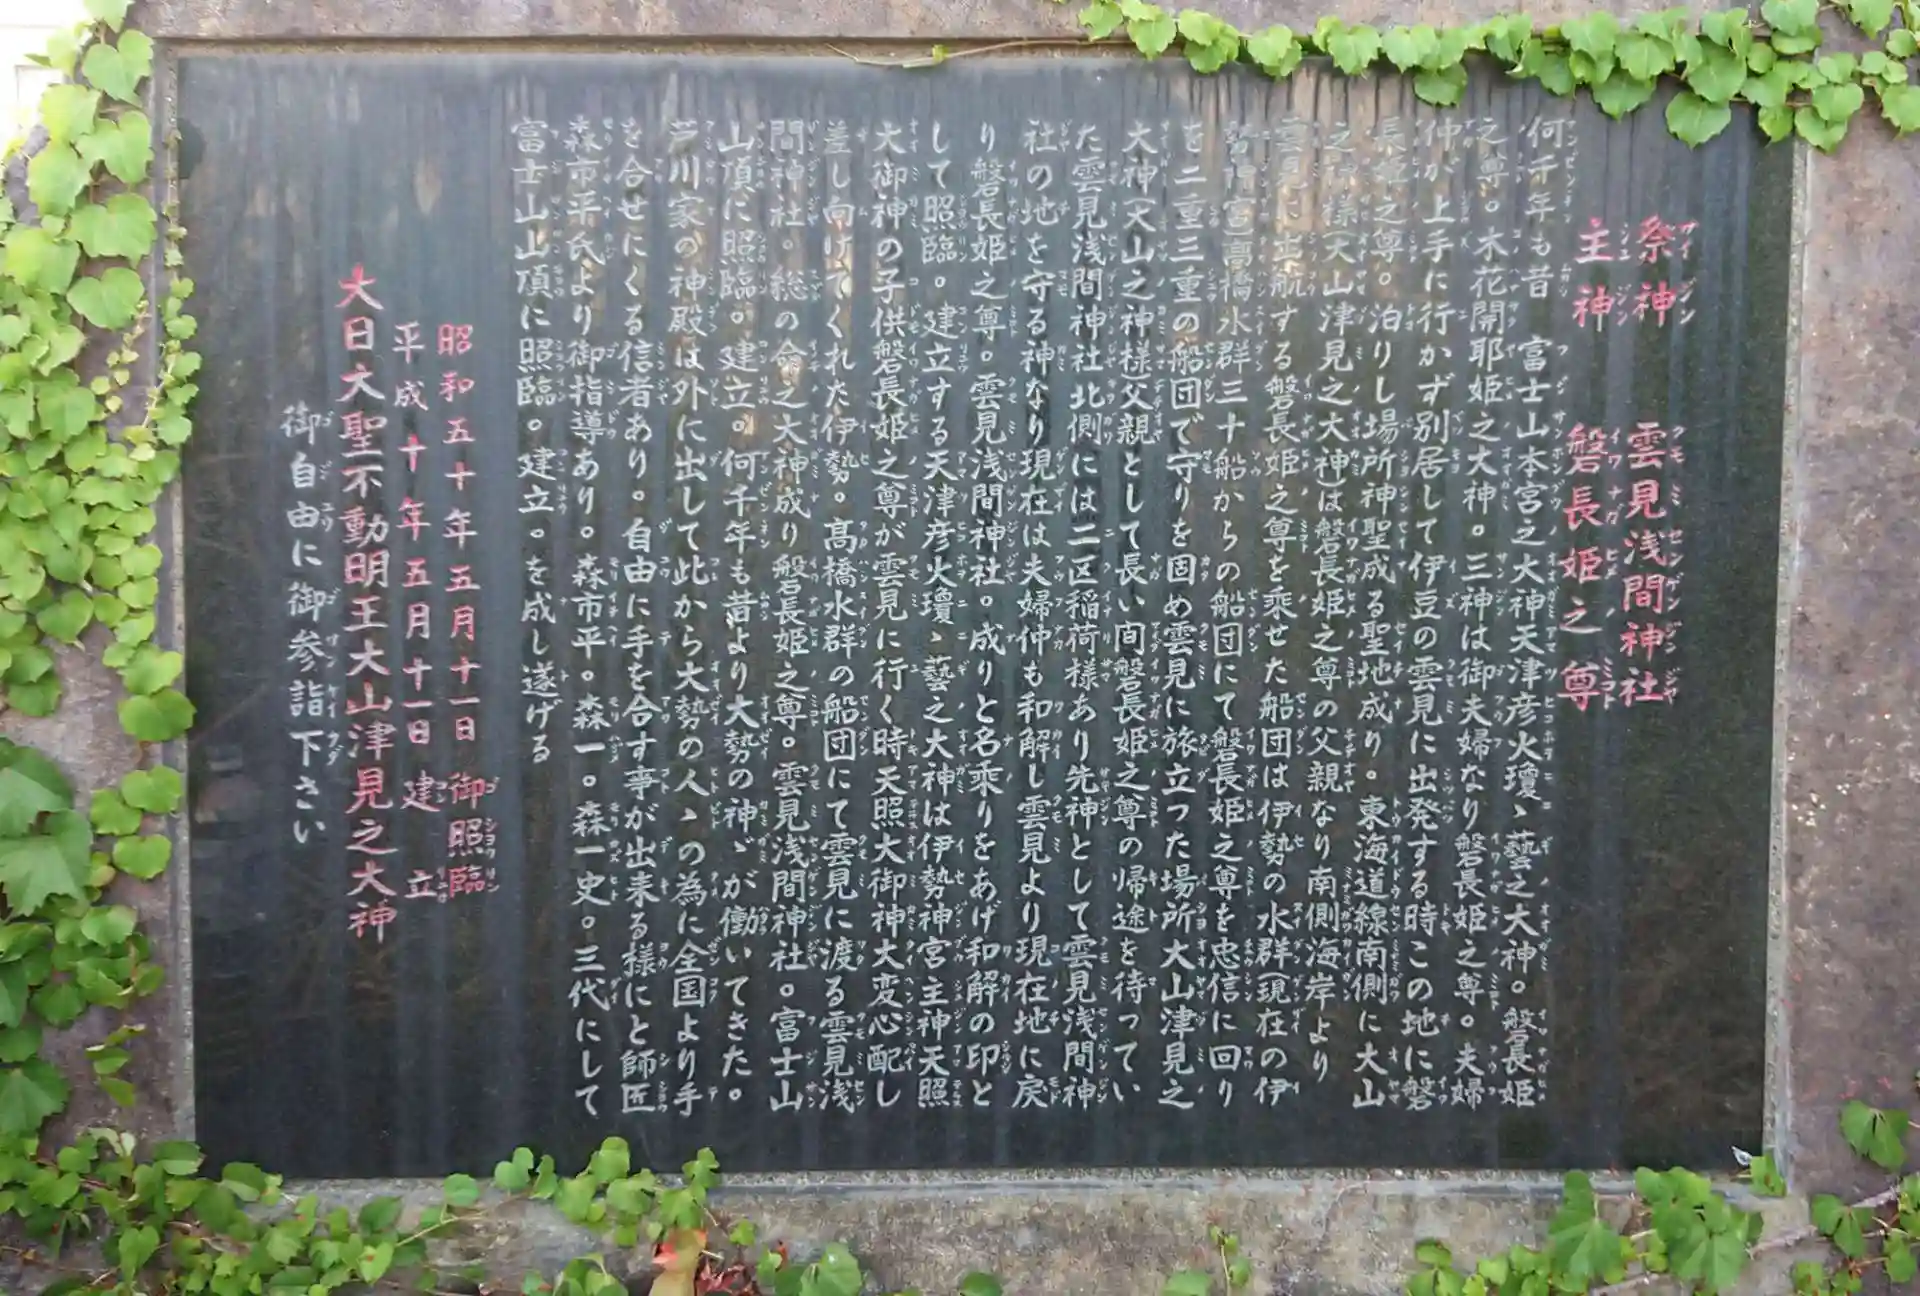 祭神　雲見浅間神社
主神　磐長姫之尊
何千年も昔　富士山本宮之大神天津彦火瓊〻藝之大神。磐長姫
之尊。木花開耶姫之大神。三神は御夫婦なり磐長姫之尊。夫婦
仲が上手に行かず別居して伊豆の雲見に出発する時この地に磐
長姫之尊。泊りし場所神聖成る聖地成り。東海道線南側に大山
之神様(大山津見之大神)は磐長姫之尊の父親なり南側海岸より
雲見に出航する磐長姫之尊を乗せた船団は伊勢の水群(現在の伊
勢神宮)高橋水群三十船からの船団にて磐長姫之尊を忠信に回り
を二重三重の船団で守りを固め雲見に旅立った場所大山津見之
大神(大山之神様父親として長い間磐長姫之尊の帰途を待ってい
た雲見浅間神社北側には二区稲荷様あり先神として雲見浅間神
社の地を守る神なり現在は夫婦仲も和解し雲見より現在地に戻
り磐長姫之尊。雲見浅間神社。成りと名乗りをあげ和解の印と
して照臨。建立する天津彦火瓊〻藝之大神は伊勢神宮主神天照
大御神の子供磐長姫之尊が雲見に行く時天照大御神大変心配し
差し向けてくれた伊勢。高橋水群の船団にて雲見に渡る雲見浅
間神社。総の命之大神成り磐長姫之尊。雲見浅間神社。富士山
山頂に照臨。建立。何千年も昔より大勢の神〻が働いてきた。
芦川家の神殿は外に出して此から大勢の人〻の為に全国より手
を合せにくる信者あり。自由に手を合す事が出来る様にと師匠
森市平氏より御指導あり。森市平。森一。森一史。三代にして
富士山山頂に照臨。建立。を成し遂げる
昭和五十年五月十一日　御照臨
平成十年五月十一日　建立
大日大聖不動明王大山津見之大神
御自由に御参詣下さい